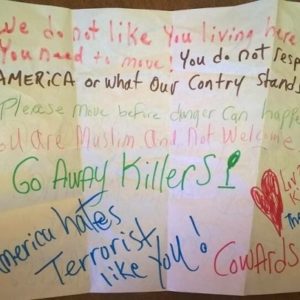 We do not like You living here
You need to move! You do not resp
AMERICA or what Our Contry Stands
Please move before danger Can happe
You are Muslim And Not Welcome
GO AWAY Killers!
America hates
Terrorist
like You!
Cowards